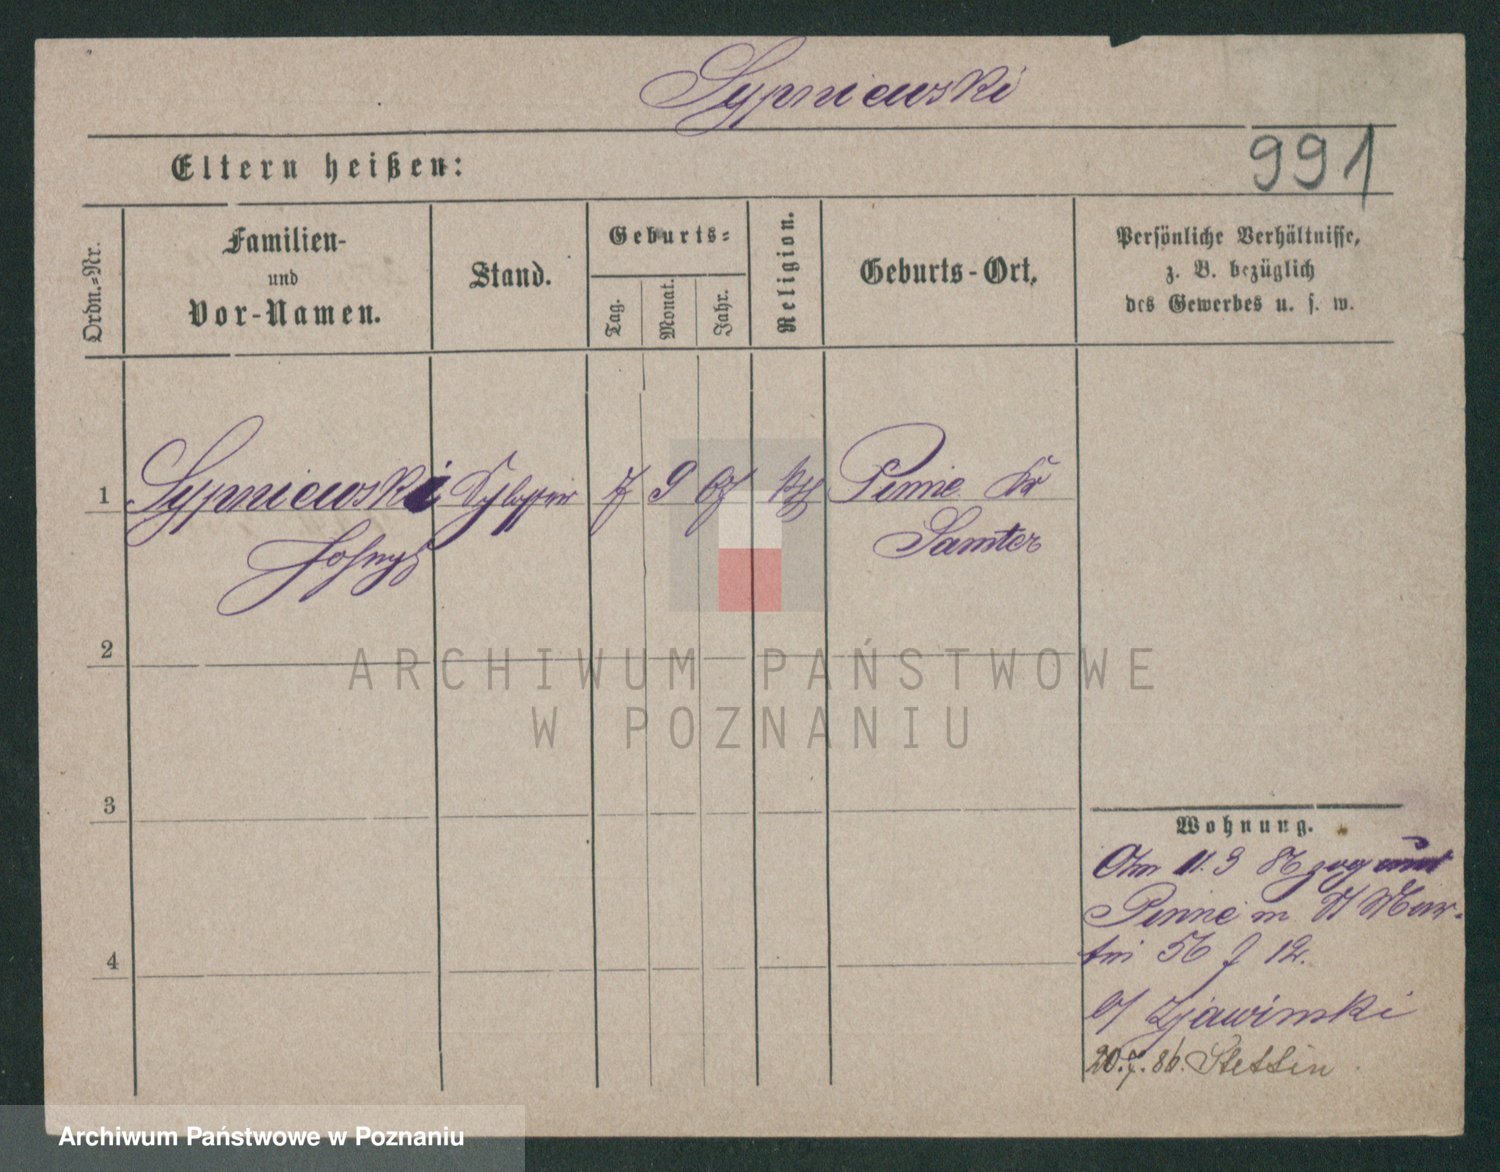 Sypniewski
991
Eltern heißen:
Ordn.-Nr.
Familien-
und
Vor-Namen.
Stand.
Geburts-
Tag.
Monat.
Jahr.
Religion.
Geburts-Ort.
Persönliche Verhältnisse,
z. B. bezüglich
des Gewerbes u. s. w.
1 Sypniewski 7 9 67 kth Pinne Kr
Samter
2
3
4
Wohnung.
Am 11.3 86 zog
Pinne n St Mar-
tin 56 f 12.
b/ Zjawinski
20.7.86. Stettin
ARCHIWUM PAŃSTWOWE
W POZNANIU
Archiwum Państwowe w Poznaniu